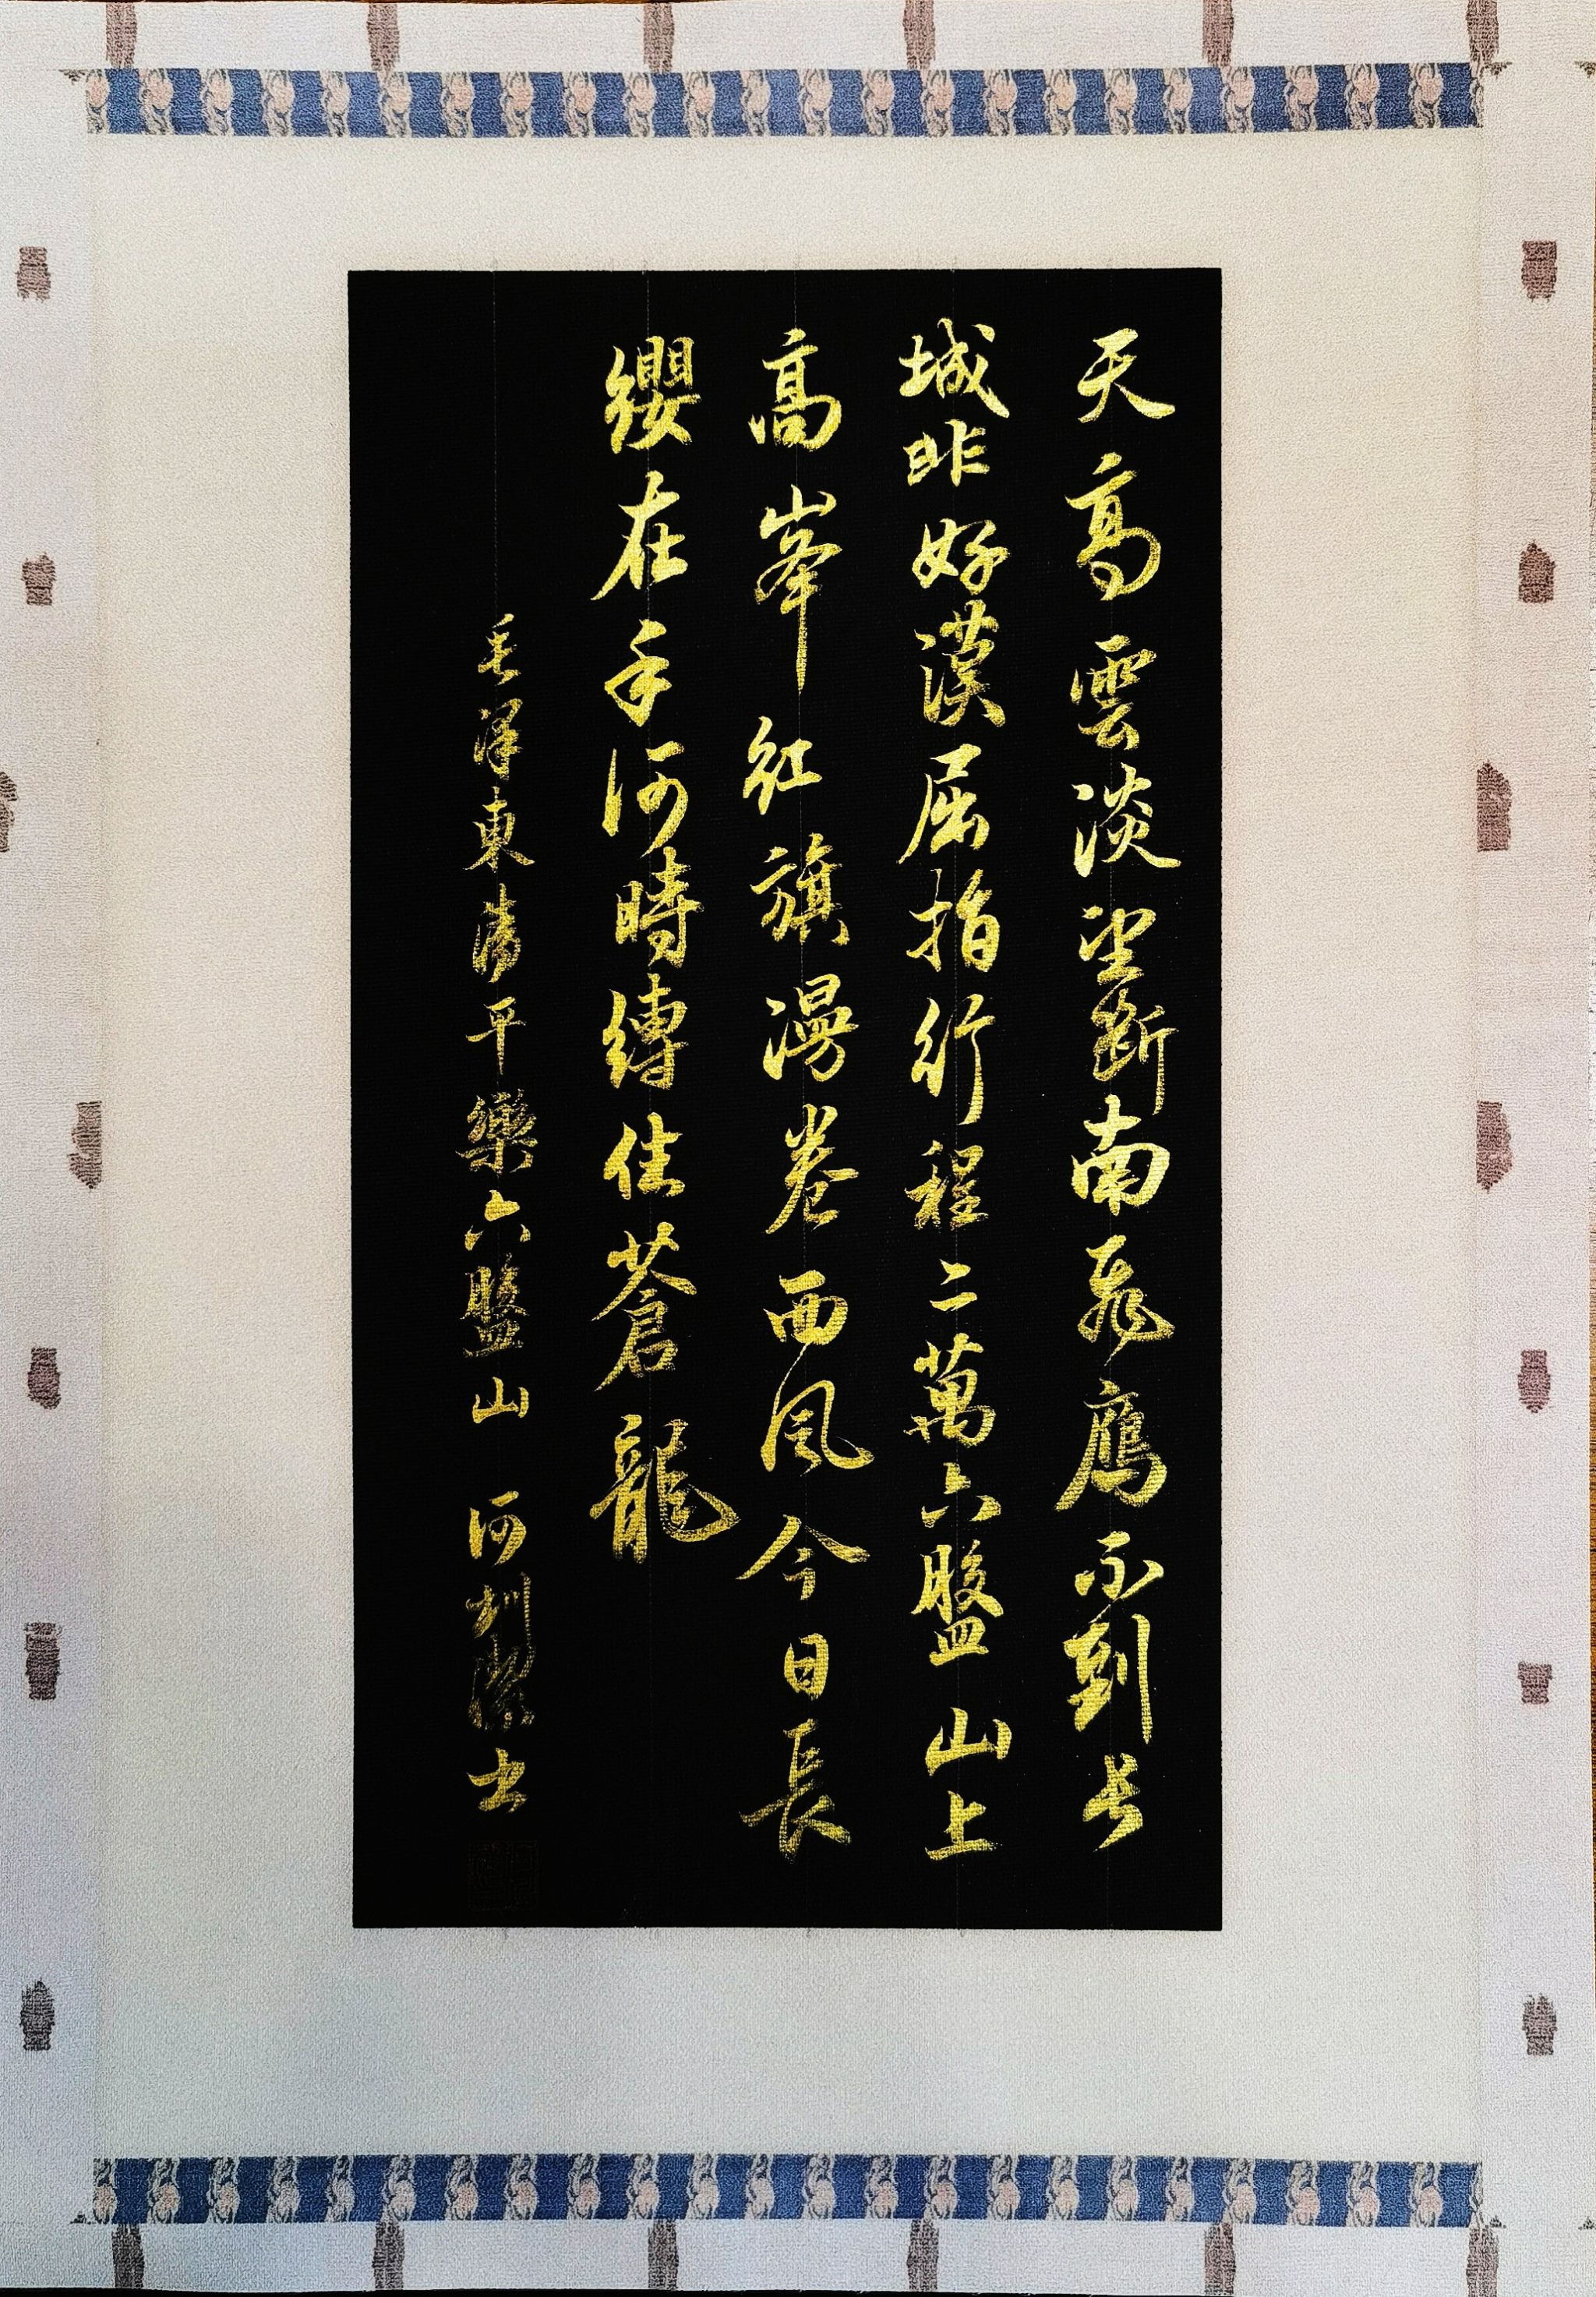 天高雲淡望斷南飛鷹不到长
城非好漢屈指行程二萬六盤山上
高峯紅旗漫卷西風今日長
纓在手何時縛住蒼龍
毛澤東清平樂六盤山 何圳書